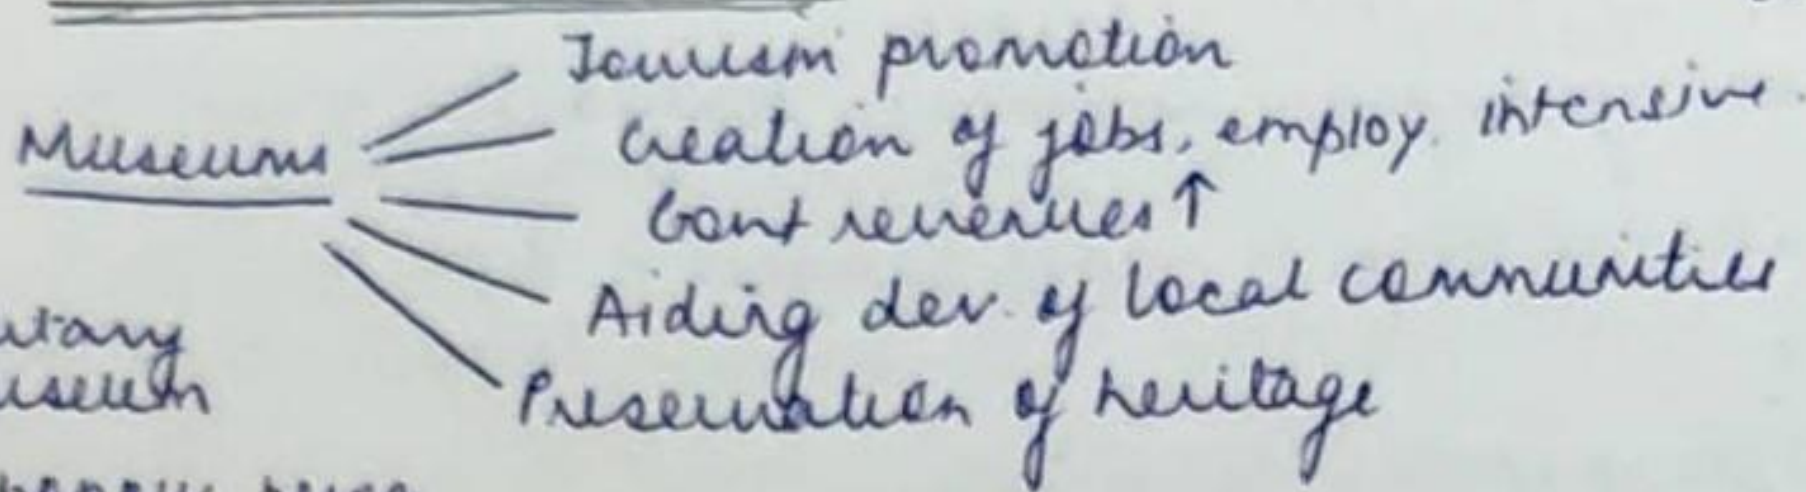 Tourism promotion
Museums
Creation of jobs, employ. intensive.
Govt revenues ↑
Aiding dev. of local communities
Preservation of heritage